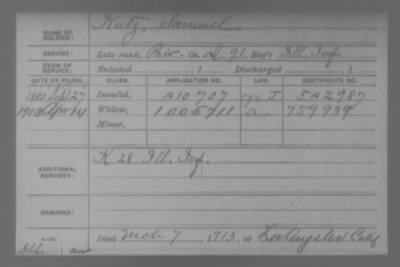 NAME OF SOLDIER: Kutz, Samuel
SERVICE: Late rank, Priv. Co. D, 91 Reg't Ill. Inf
TERM OF SERVICE: Enlisted , 1 Discharged , 1
DATE OF FILING. CLASS. APPLICATION NO. LAW. CERTIFICATE NO.
Sept 27 Invalid, 810707 J 542987
1913 Apr 14 Widow, 1005711 a 759939
Minor,
ADDITIONAL SERVICES: K 28 Ill. Inf.
REMARKS:
Died Mch 7, 1913, at Los Angeles Calif